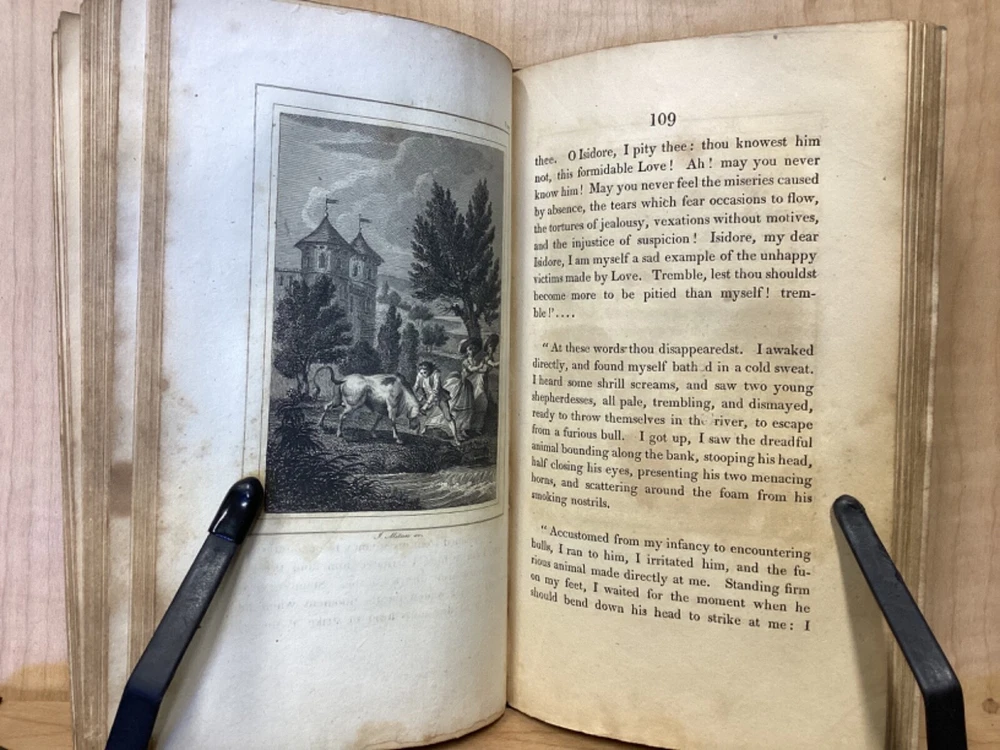 109
thee. O Isidore, I pity thee: thou knowest him
not, this formidable Love! Ah! may you never
know him! May you never feel the miseries caused
by absence, the tears which fear occasions to flow,
the tortures of jealousy, vexations without motives,
and the injustice of suspicion! Isidore, my dear
Isidore, I am myself a sad example of the unhappy
victims made by Love. Tremble, lest thou shouldst
become more to be pitied than myself! trem-
ble!'....
"At these words thou disappearedst. I awaked
directly, and found myself bath d in a cold sweat.
I heard some shrill screams, and saw two young
shepherdesses, all pale, trembling, and dismayed,
ready to throw themselves in the river, to escape
from a furious bull. I got up, I saw the dreadful
animal bounding along the bank, stooping his head,
half closing his eyes, presenting his two menacing
horns, and scattering around the foam from his
smoking nostrils.
"Accustomed from my infancy to encountering
bulls, I ran to him, I irritated him, and the fu-
rious animal made directly at me. Standing firm
on my feet, I waited for the moment when he
should bend down his head to strike at me: I